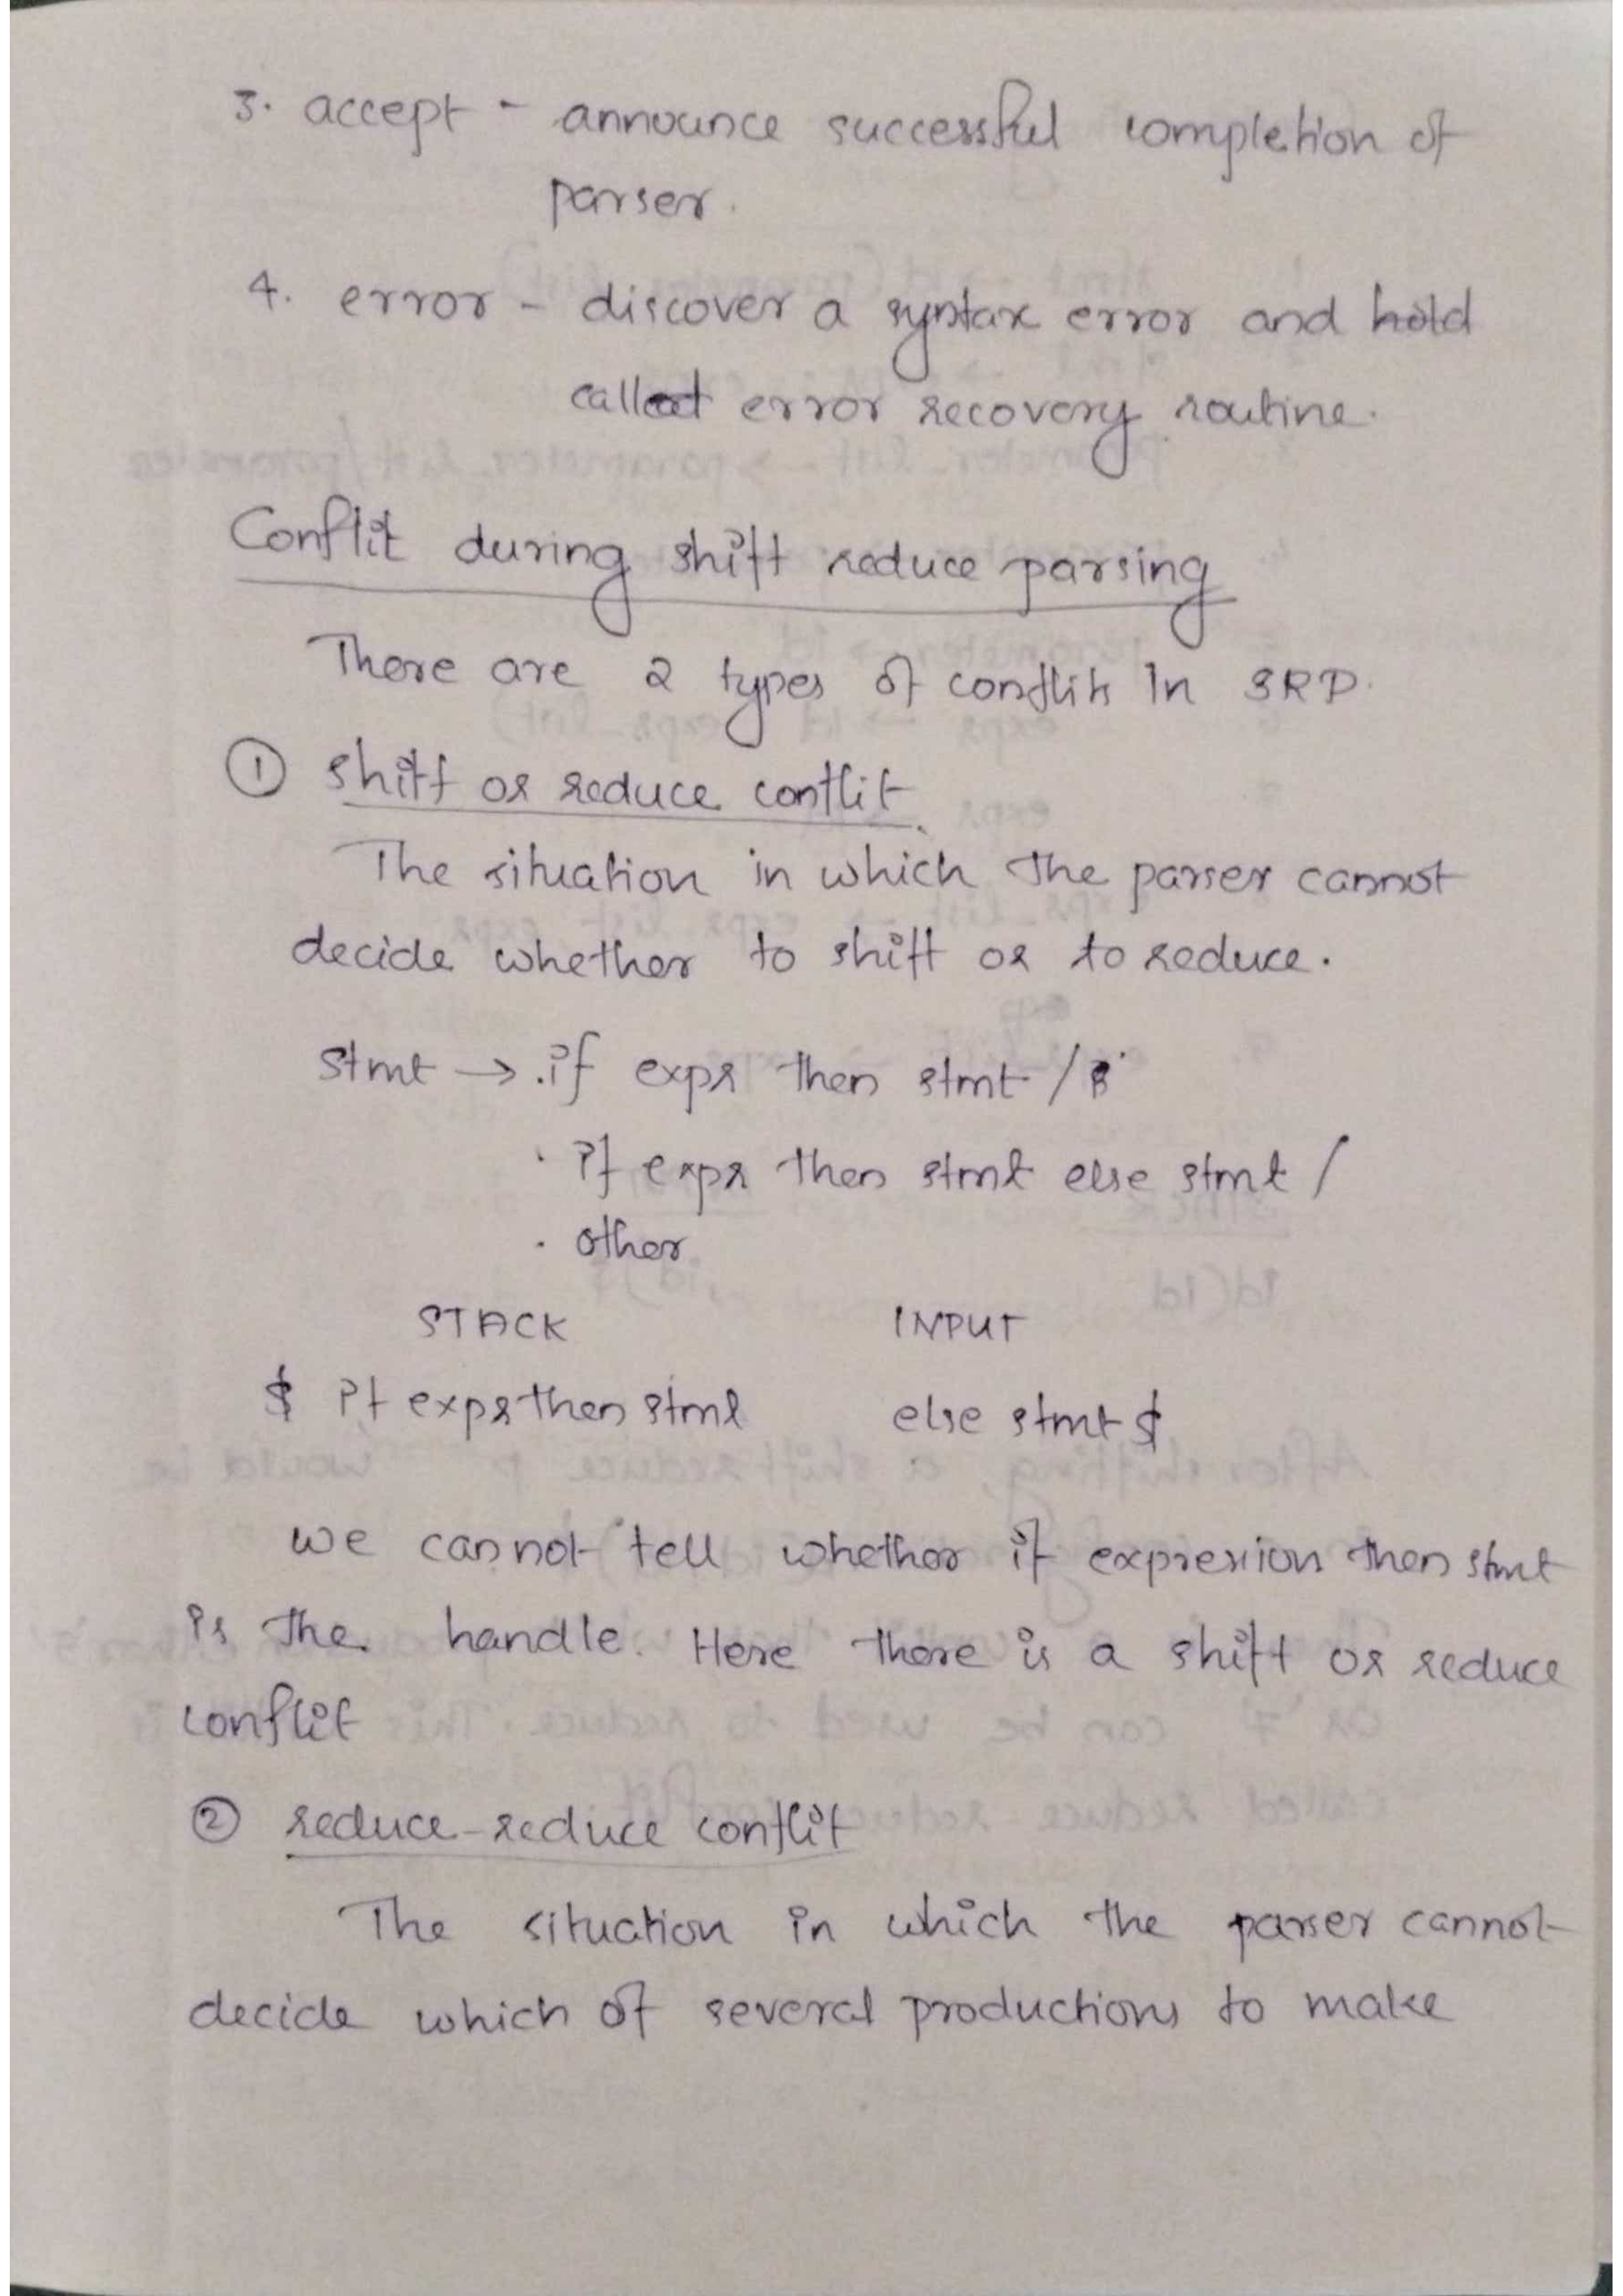 3. accept - announce successful completion of
parser.
4. error - discover a syntax error and hold
called error recovery routine.
Conflit during shift reduce parsing
There are 2 types of conflits In SRP.
① shift or reduce conflit.
The situation in which the parser cannot
decide whether to shift or to reduce.
stmt → .if expr then stmt /
. if expr then stmt else stmt /
. other
STACK INPUT
$ if expr then stmt else stmt $
we cannot tell whether if expression then stmt
is the handle. Here there is a shift or reduce
conflit
② reduce-reduce conflit
The situation in which the parser cannot
decide which of several productions to make